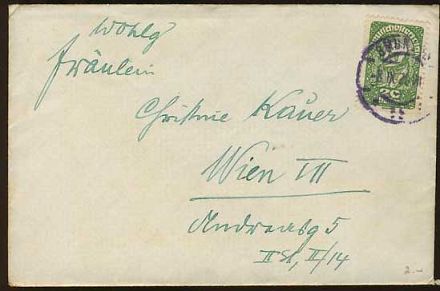 Wohlg
Fräulein
Christine Kauer
Wien III
II St, II/14
2.-